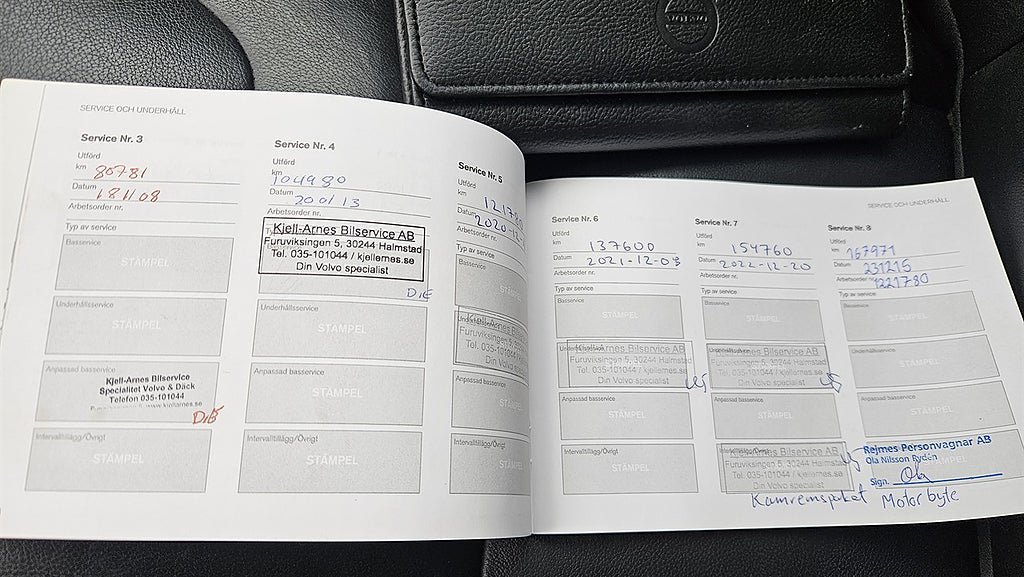 VOLVO
SERVICE OCH UNDERHÅLL
Service Nr. 3
Utförd
km 80781
Datum 181108
Arbetsorder nr.
Typ av service
Basservice
STÄMPEL
Underhållsservice
STÄMPEL
Anpassad basservice
Kjell-Arnes Bilservice
Specialitet Volvo & Däck
Telefon 035-101044
www.kjellarnes.se
DiE
Intervalltillägg/Övrigt
STÄMPEL
Service Nr. 4
Utförd
km 104980
Datum 200113
Arbetsorder nr.
Kjell-Arnes Bilservice AB
Furuviksingen 5, 30244 Halmstad
Tel. 035-101044 / kjellernes.se
Din Volvo specialist
DiE
Underhållsservice
STÄMPEL
Anpassad basservice
STÄMPEL
Intervalltillägg/Övrigt
STÄMPEL
Service Nr. 5
Utförd
km
Datum 2020-12-
Arbetsorder nr.
Typ av service
Basservice
STÄMPEL
Kjell-Arnes Bilservice
Furuviksingen 5, 30244
Tel. 035-101044 /
Din Volvo
Anpassad basservice
STÄMPEL
Intervalltillägg/Övrigt
STÄMPEL
SERVICE OCH UNDERHÅLL
Service Nr. 6
Utförd
km 137600
Datum 2021-12-09
Arbetsorder nr
Typ av service
Basservice
STÄMPEL
Kjell-Arnes Bilservice AB
Furuviksingen 5, 30244 Halmstad
Tel. 035-101044 / kjellernes.se
Din Volvo specialist
Anpassad basservice
STÄMPEL
Intervalltillägg/Övrigt
STÄMPEL
Service Nr. 7
Utförd
km 154760
Datum 2022-12-20
Arbetsorder nr.
Typ av service
Basservice
STÄMPEL
Kjell-Arnes Bilservice AB
Furuviksingen 5, 30244 Halmstad
Tel. 035-101044 / kjellernes.se
Din Volvo specialist
Anpassad basservice
STÄMPEL
Kjell-Arnes Bilservice AB
Furuviksingen 5, 30244 Halmstad
Tel. 035-101044 / kjellernes.se
Din Volvo specialist
Kamremspaket
Service Nr. 8
Utförd
km 167971
Datum 231215
Arbetsorder nr. 1221780
Typ av service
Basservice
STÄMPEL
Underhållsservice
STÄMPEL
Anpassad basservice
STÄMPEL
Rejmes Personvagnar AB
Ola Nilsson Rydén
STÄMPEL
Sign. Ola
Motorbyte